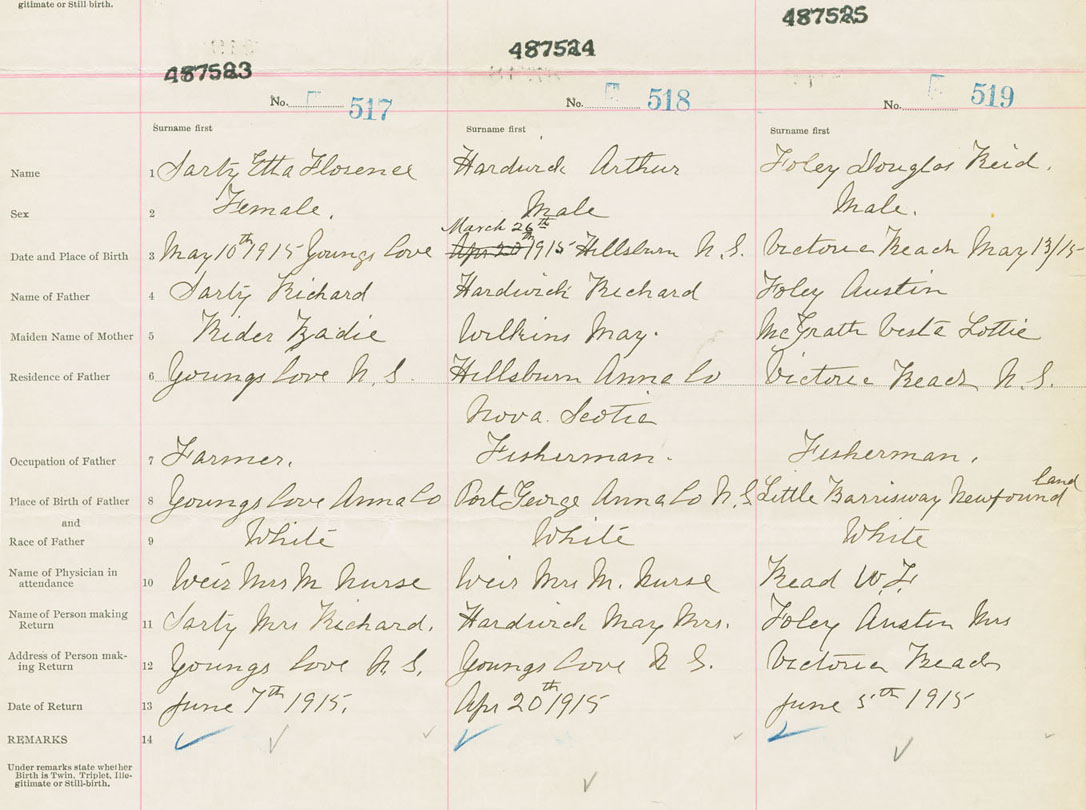 gitimate or Still birth.
487523 487524 487525
No. 517 No. 518 No. 519
Surname first Surname first Surname first
Name 1 Sarty Etta Florence Hardwick Arthur Foley Douglas Reid.
Sex 2 Female. Male Male.
March 26th
Date and Place of Birth 3 May 10th 1915 Youngs Cove Apr 20th 1915 Hillsburn N. S. Victoria Beach May 13/15
Name of Father 4 Sarty Richard Hardwick Richard Foley Austin
Maiden Name of Mother 5 Rider Zadie Wilkins May. McGrath Vesta Lottie
Residence of Father 6 Youngs Cove N. S. Hillsburn Anna Co Victoria Beach N. S.
Nova Scotia
Occupation of Father 7 Farmer. Fisherman. Fisherman.
Place of Birth of Father 8 Youngs Cove Anna Co Port George Anna Co N. S. Little Barrisway Newfoundland
and
Race of Father 9 White White White
Name of Physician in
attendance 10 Weir Mrs M Nurse Weir Mrs M. Nurse Read W. F.
Name of Person making
Return 11 Sarty Mrs Richard. Hardwick May Mrs. Foley Austin Mrs
Address of Person mak-
ing Return 12 Youngs Cove N. S. Youngs Cove N. S. Victoria Beach
Date of Return 13 June 7th 1915. Apr 20th 1915 June 5th 1915
REMARKS 14
Under remarks state whether
Birth is Twin, Triplet, Ille-
gitimate or Still-birth.